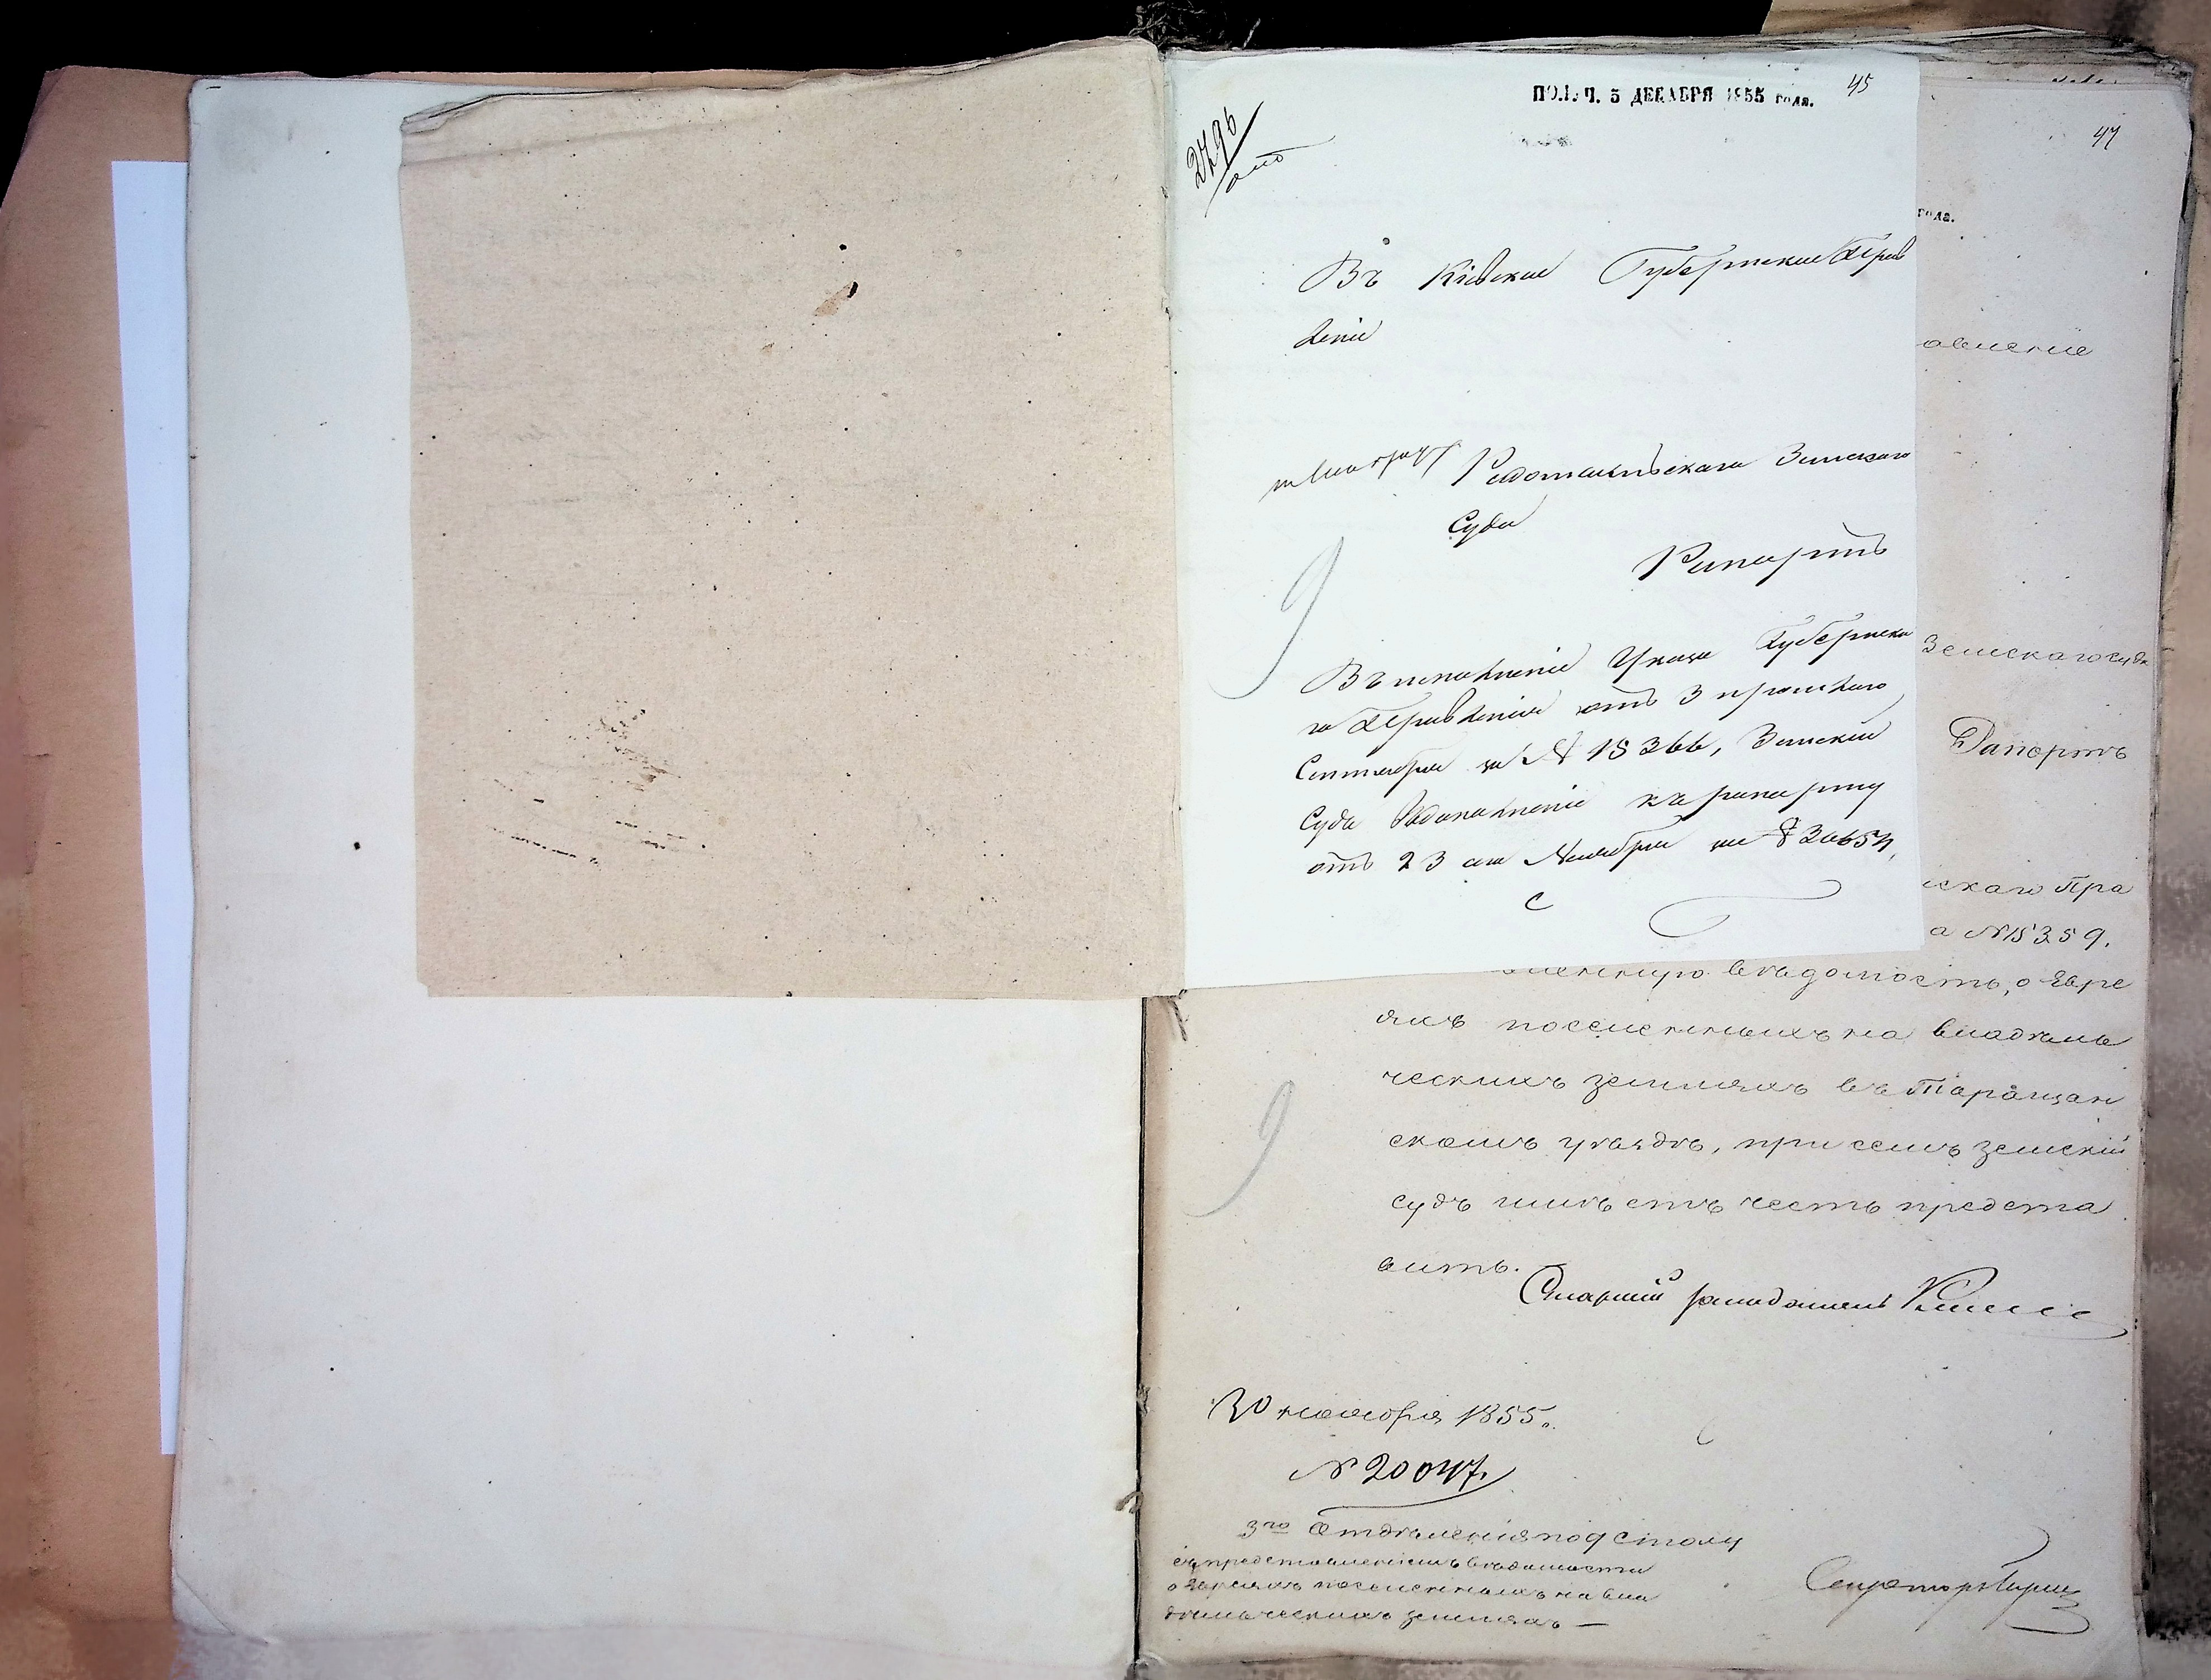 ПОЛУЧ. 5 ДЕКАБРЯ 1855 года.
45
2796
Въ Кіевское Губернское Прав
леніе
Радомысльскаго Земскаго
Суда
Рапортъ
Въ исполненіе Указа Губернска
го Правленія отъ 3 прошлаго
Сентября за № 15366, Земскій
Судъ въ дополненіе къ рапорту
отъ 23 Ноября за № 20654,
с
47
года.
авленіе
Земскаго суда
Рапортъ
скаго Пра
а №15359.
вленную вѣдомость, о Евре
яхъ поселенныхъ на владѣль
ческихъ земляхъ въ Таращан
скомъ уѣздѣ, при семъ земскій
судъ имѣетъ честь предста
вить.
Старшій
30 ноября 1855.
№ 20047.
3го Отдѣленія под столу
съ представленіемъ вѣдомости
о Евреяхъ поселенныхъ на вла
дѣльческихъ земляхъ —
Секретарь